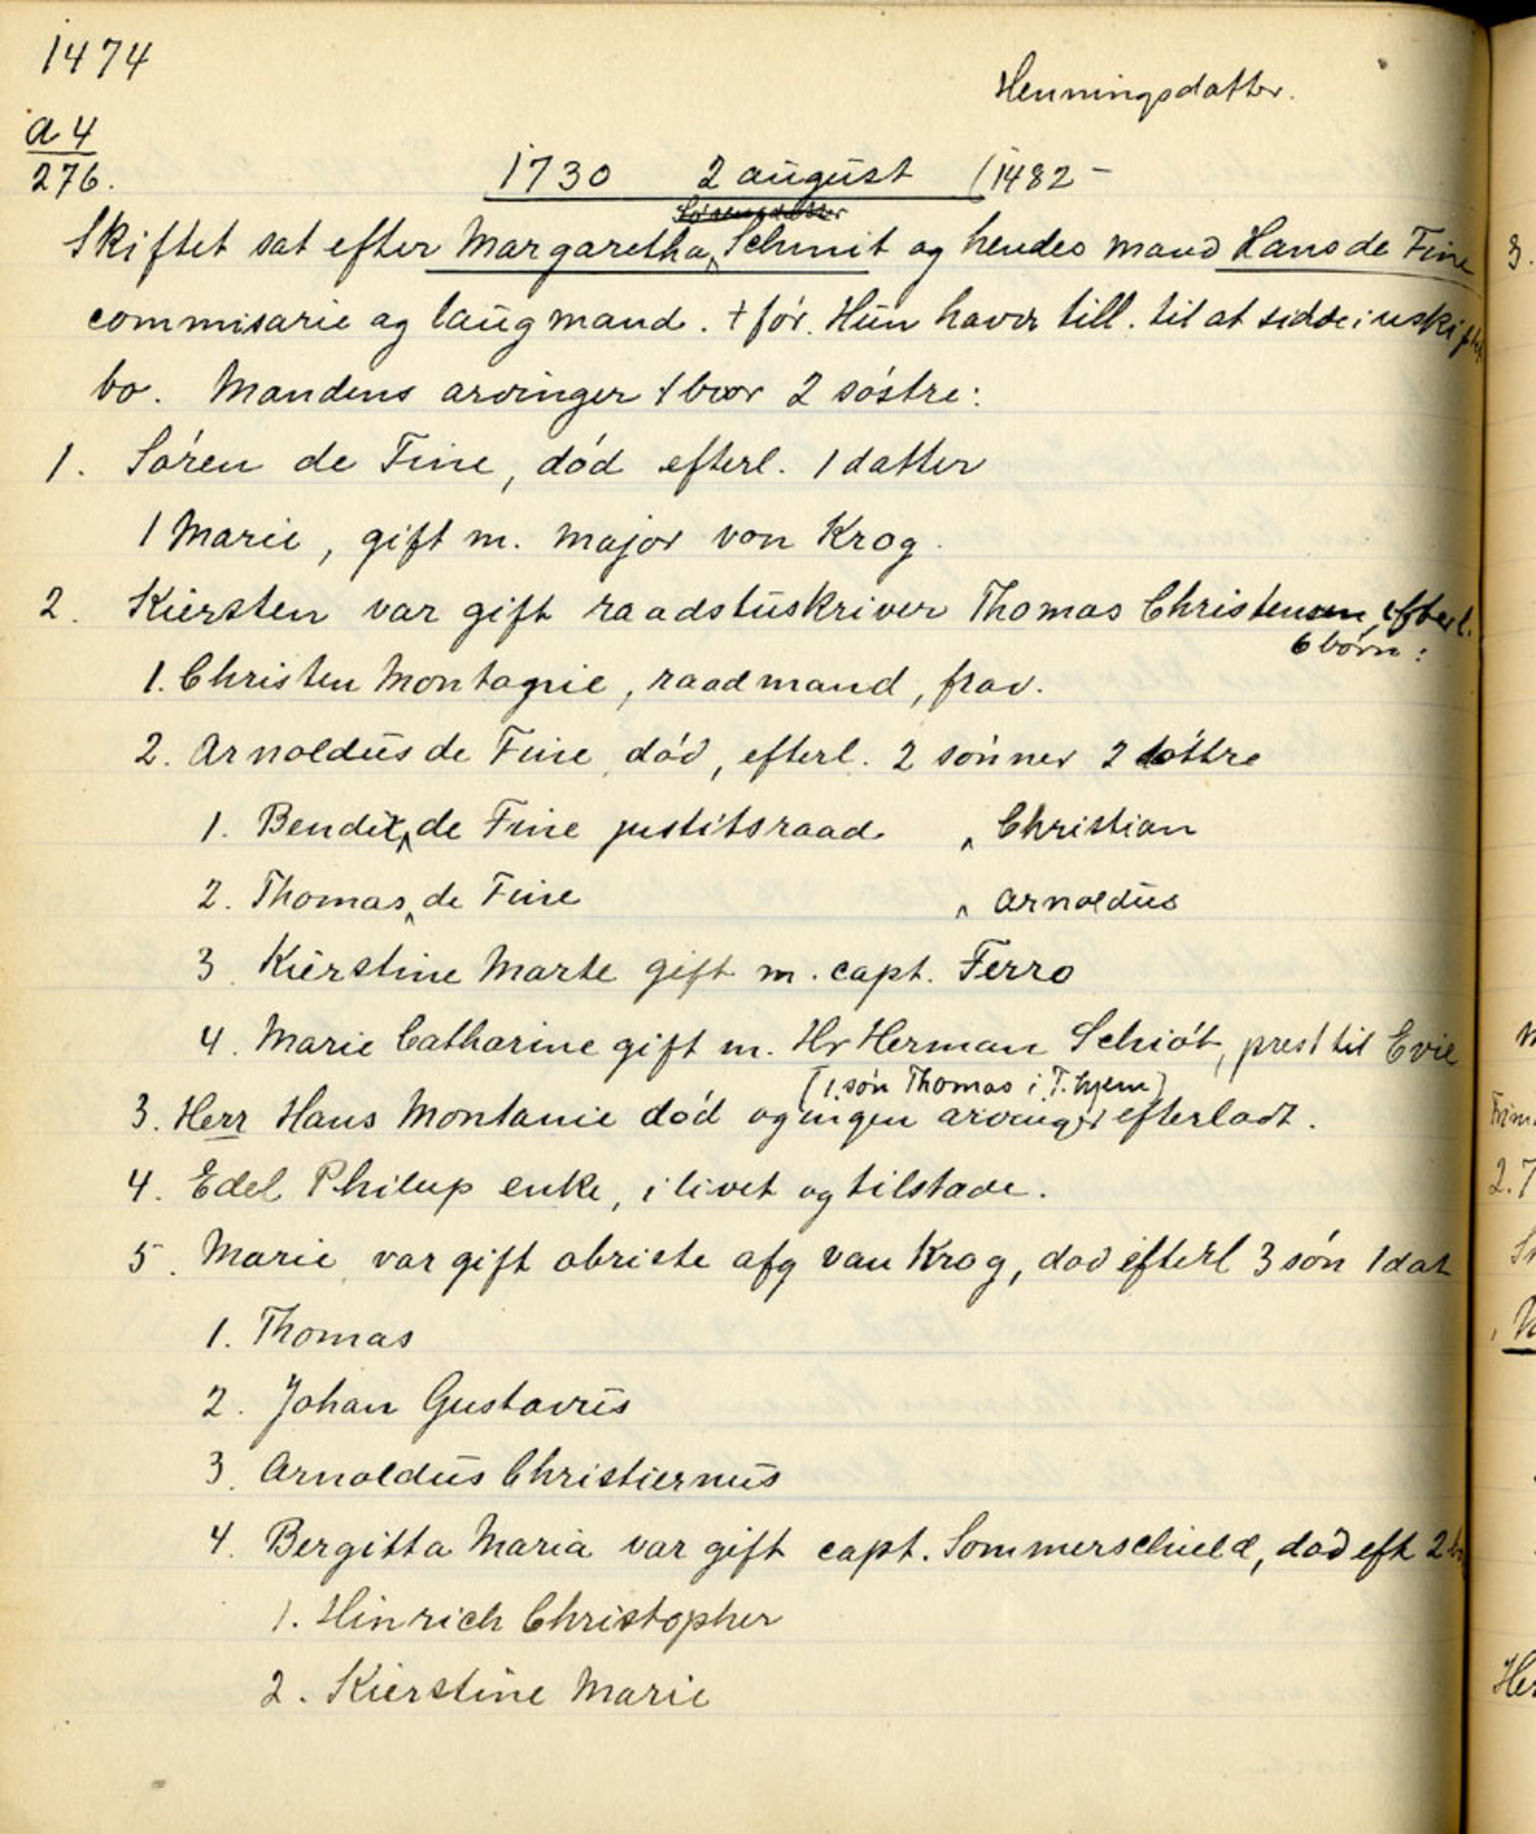 1474
Henningsdatter.
a 4
276.
1730 2 august (1482 -
Sørensdatter
Skiftet sat efter Margaretha Schmit og hendes mand Hans de Fine
commisarie og laugmand. + før. Hun haver till. til at sidde i uskiftet
bo. Mandens arvinger 1 bror 2 søstre:
1. Søren de Fine, død efterl. 1 datter
1 Marie, gift m. major von Krog.
2. Kiersten var gift raadstuskriver Thomas Christensen, efterl.
6 børn:
1. Christen Montagnie, raadmand, frav.
2. Arnoldus de Fine, død, efterl. 2 sønner 2 døttre
1. Bendix de Fine justitsraad ^ Christian
2. Thomas ^ de Fine ^ Arnoldus
3 Kierstine Marte gift m. capt. Ferro
4. Marie Catharine gift m. Hr Herman Schiøt, prest til Evie
(1. søn Thomas i T.hjem)
3. Herr Hans Montanie død og ingen arvinger efterladt.
4. Edel Philup enke, i livet og tilstæde.
5. Marie, var gift obriste afg van Krog, død efterl 3 søn 1 dat
1. Thomas
2. Johan Gustavus
3. Arnoldus Christiernus
4. Bergitta Maria var gift capt. Sommerschield, død eft 2
1. Hinrich Christopher
2. Kierstine Marie